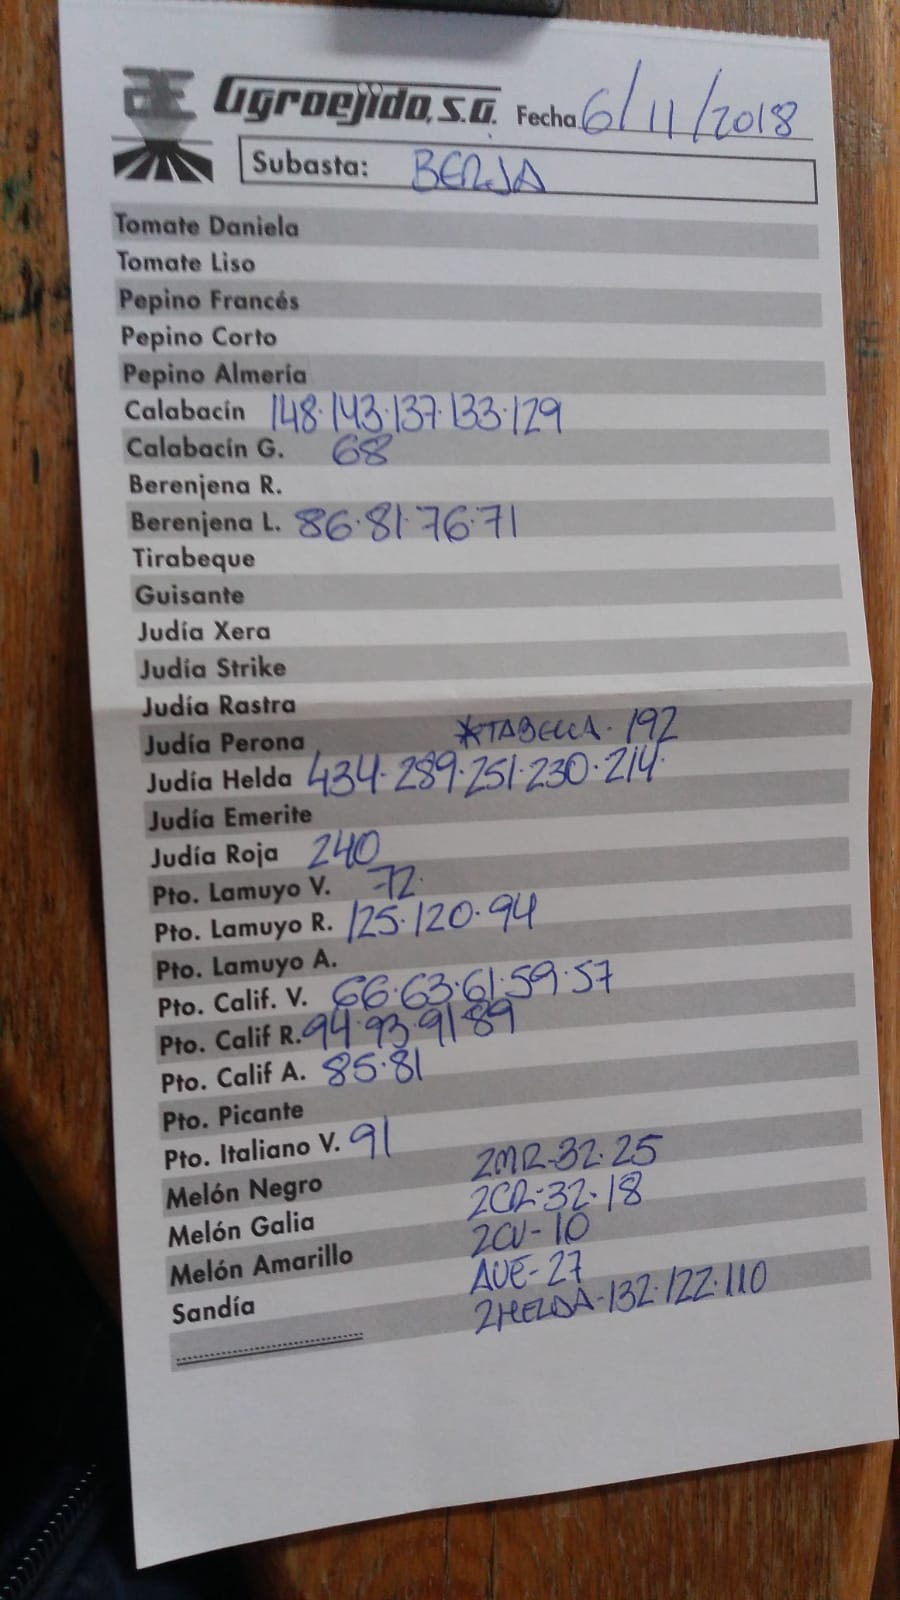 Agroejido, S.A. Fecha 6/11/2018
Subasta: BERJA
Tomate Daniela
Tomate Liso
Pepino Francés
Pepino Corto
Pepino Almería
Calabacín 148·143·137·133·129
Calabacín G. 68
Berenjena R.
Berenjena L. 86·81·76·71
Tirabeque
Guisante
Judía Xera
Judía Strike
Judía Rastra
Judía Perona *TABELLA· 192
Judía Helda 434·289·251·230·214·
Judía Emerite
Judía Roja 240
Pto. Lamuyo V. 72·
Pto. Lamuyo R. 125·120·94
Pto. Lamuyo A.
Pto. Calif. V. 66·63·61·59·57
Pto. Calif R. 94·93·91·89
Pto. Calif A. 85·81
Pto. Picante
Pto. Italiano V. 91
Melón Negro 2MR-32·25
Melón Galia 2CR-32·18
Melón Amarillo 2CV-10
Sandía AVE-27
2HELDA-132·122·110